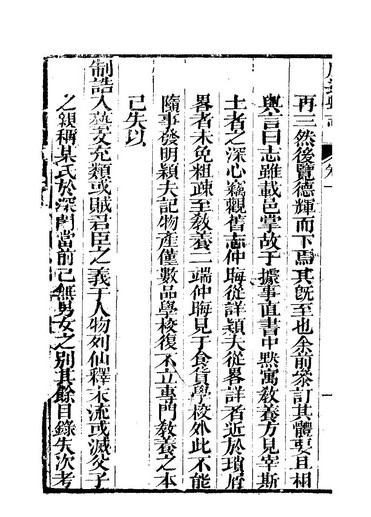 再三然後覽德輝而下焉其旣至也余前叅訂其髒要且相
與言曰志雖載邑掌故子據事直書中黙寓敎養方見宰斯
土者之深心竊觀舊志仲晦從詳頴夫從畧詳者近於瑣屑
畧者未免粗疎至敎養二端仲晦見于食貨學校外此不能
隨事發明頴夫記物產僅數品學校復不立專門敎養之本
已失以
制誥入藝文充類或賊君臣之義于人物列仙釋末流或滅父子
之親稱某氏於深閨當前已無男女之別其餘目錄失次考